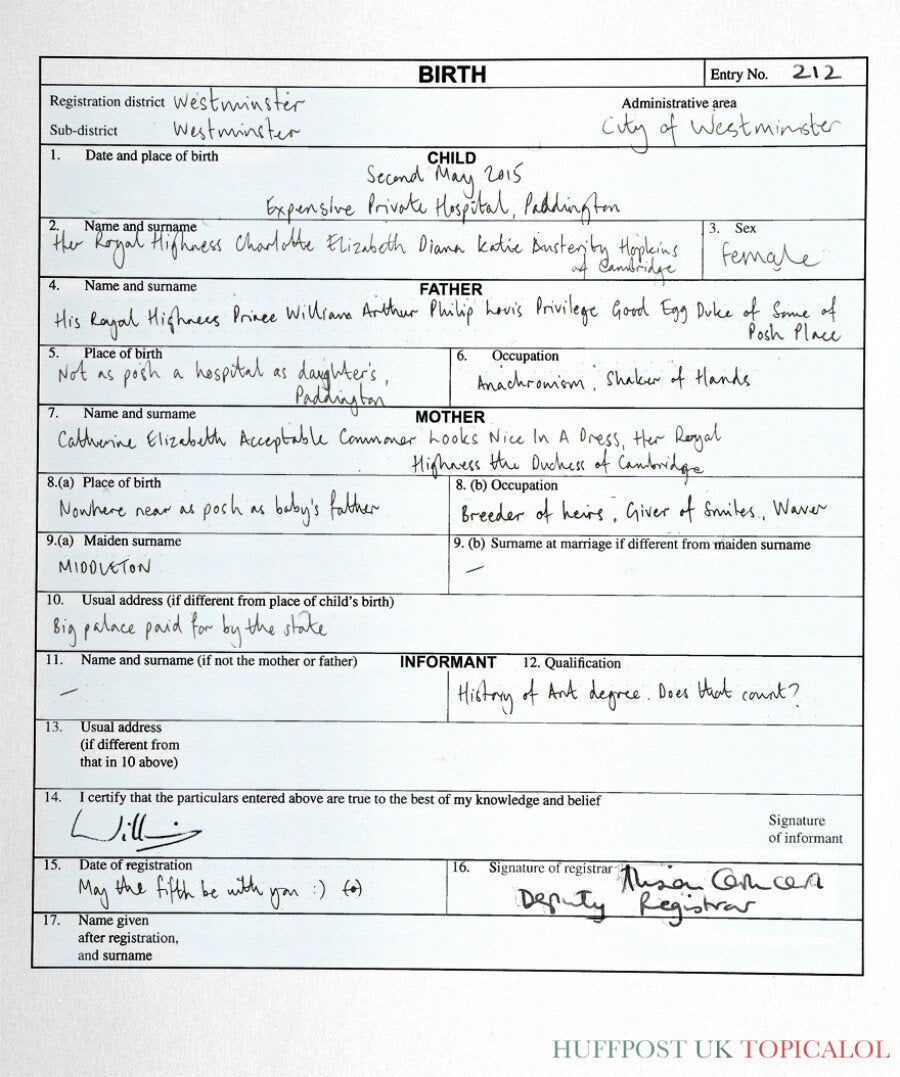 BIRTH
Entry No. 212
Registration district Westminster
Administrative area
Sub-district Westminster
City of Westminster
1. Date and place of birth
CHILD
Second May 2015
Expensive Private Hospital, Paddington
2. Name and surname
Her Royal Highness Charlotte Elizabeth Diana Katie Austerity Hopkins
of Cambridge
3. Sex
Female
4. Name and surname
FATHER
His Royal Highness Prince William Arthur Philip Louis Privilege Good Egg Duke of Some of
Posh Place
5. Place of birth
Not as posh a hospital as daughter's,
Paddington
6. Occupation
Anachronism, Shaker of Hands
7. Name and surname
MOTHER
Catherine Elizabeth Acceptable Commoner Looks Nice In A Dress, Her Royal
Highness the Duchess of Cambridge
8.(a) Place of birth
Nowhere near as posh as baby's father
8. (b) Occupation
Breeder of heirs, Giver of Smiles, Waver
9.(a) Maiden surname
MIDDLETON
9. (b) Surname at marriage if different from maiden surname
–
10. Usual address (if different from place of child's birth)
Big palace paid for by the state
11. Name and surname (if not the mother or father)
–
INFORMANT
12. Qualification
History of Art degree. Does that count?
13. Usual address
(if different from
that in 10 above)
14. I certify that the particulars entered above are true to the best of my knowledge and belief
Signature
of informant
15. Date of registration
May the fifth be with you :)
16. Signature of registrar
Deputy Registrar
17. Name given
after registration,
and surname
HUFFPOST UK TOPICALOL